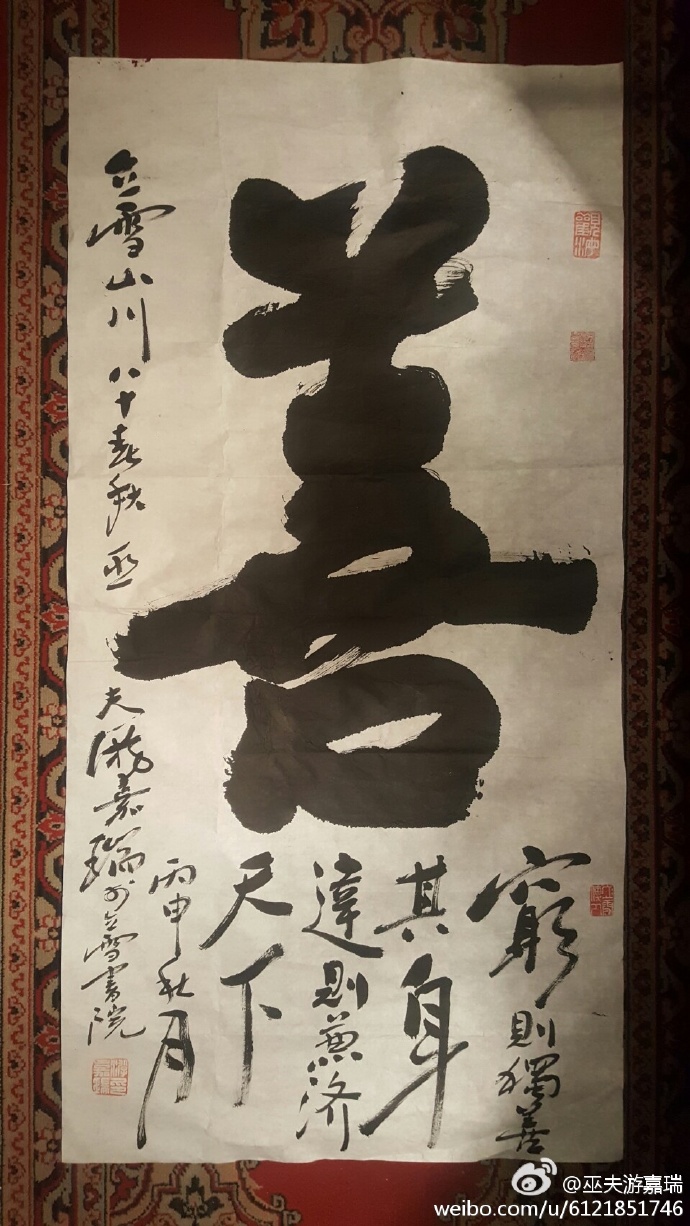 善
窮則獨善
其身
達則兼济
天下
丙申秋月
立雪山川八十春秋巫夫游嘉瑞於立雪書院
@巫夫游嘉瑞
weibo.com/u/6121851746